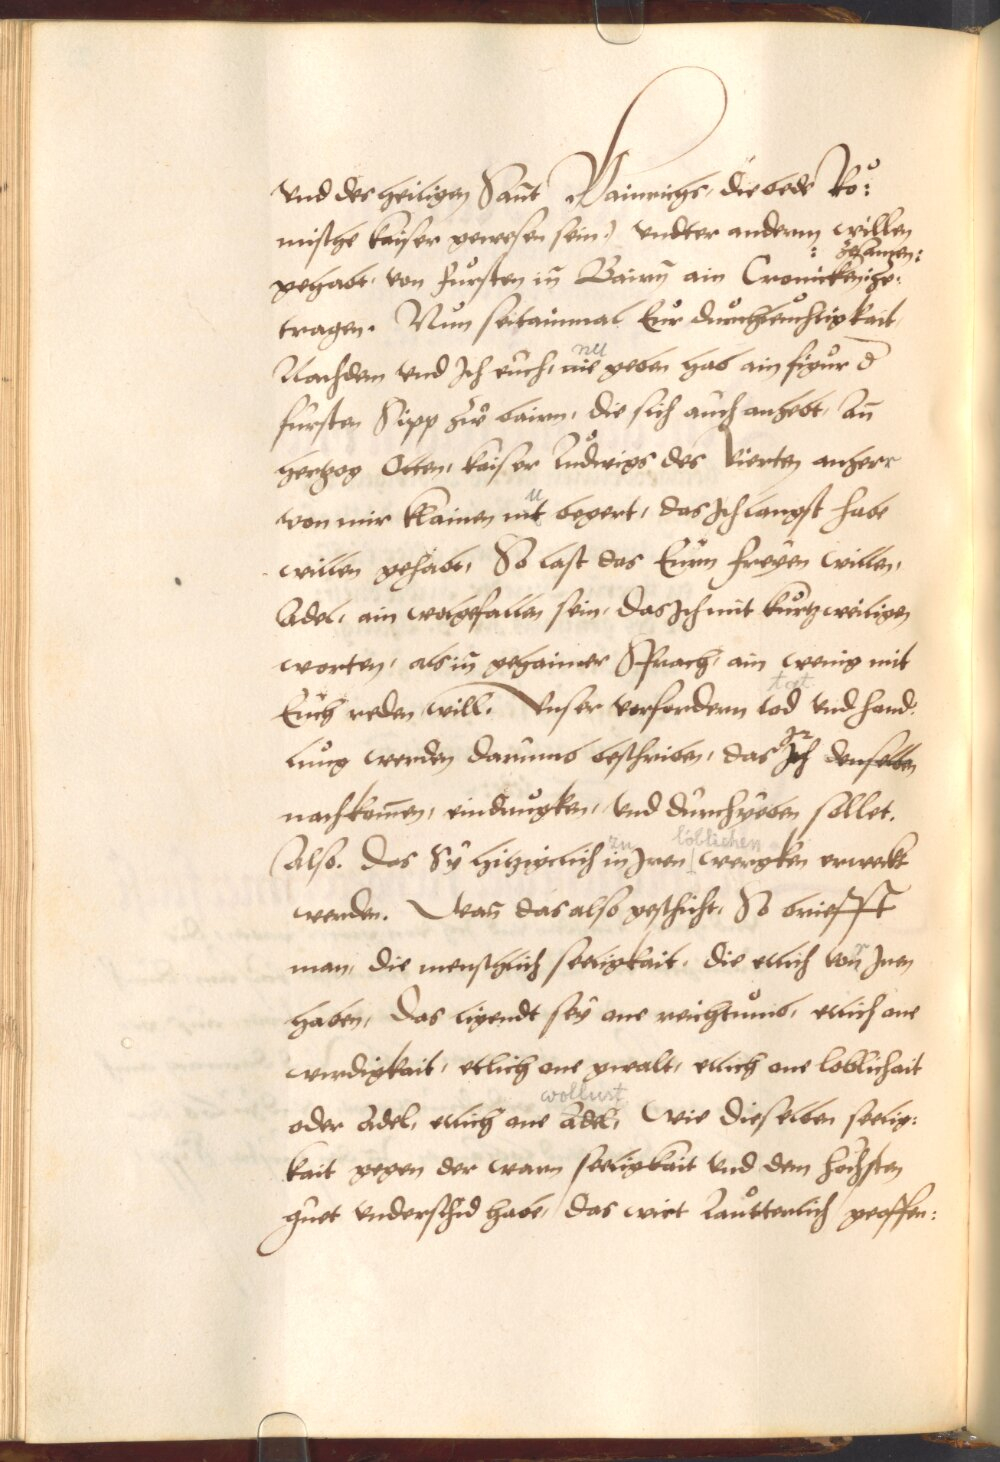 vnd des heiligen Sant Hainrichs, die bede Rö:
mische kaiser gewesen sein) vndter anderm willen
: zsamen:
gehabt, von fürsten in Bairn ain Cronicken ze:
tragen. Nun seitainmal Eur durchleuchtigkait,
nu
Nachdem vnd Ich euch, nie geben hab ain figur d
fürsten Sipp zu bairn, die sich auch anhebt, An
hertzog Otten, kaiser Ludwigs des Vierten anherr
u
von mir klainen nit begert, das Ich langst habe
willen gehabt, So last das Eurn freyen willen,
Adel, ain wolgefallen sein, das Ich mit kurtzweiligen
worten, als in gehaimer Sprach, ain wenig mit
tat
Euch reden will. Vnser vorfordern lod vnd hand:
Ir
lung werden darumb beschriben, das Ich denselben
nachkomen, eindrugken, vnd durchgeben sollet.
zu löblichen
Also. Das Sy hitzigclich in Iren wergken erweckt
werden. Wan das also geschicht, So briefft
r
man, die menschlich seeligkait, die etlich von Inen
haben, Das ligendt sey one reichtumb, etlich one
wirdigkait, etlich one gwalt, etlich one loblichait
wollust
oder Adel, etlich one Adel, Wie dieselben seelig:
kait gegen der warn seeligkait vnd dem höchsten
guet vnderschid habe, das wirt Lautterlich geoffen: